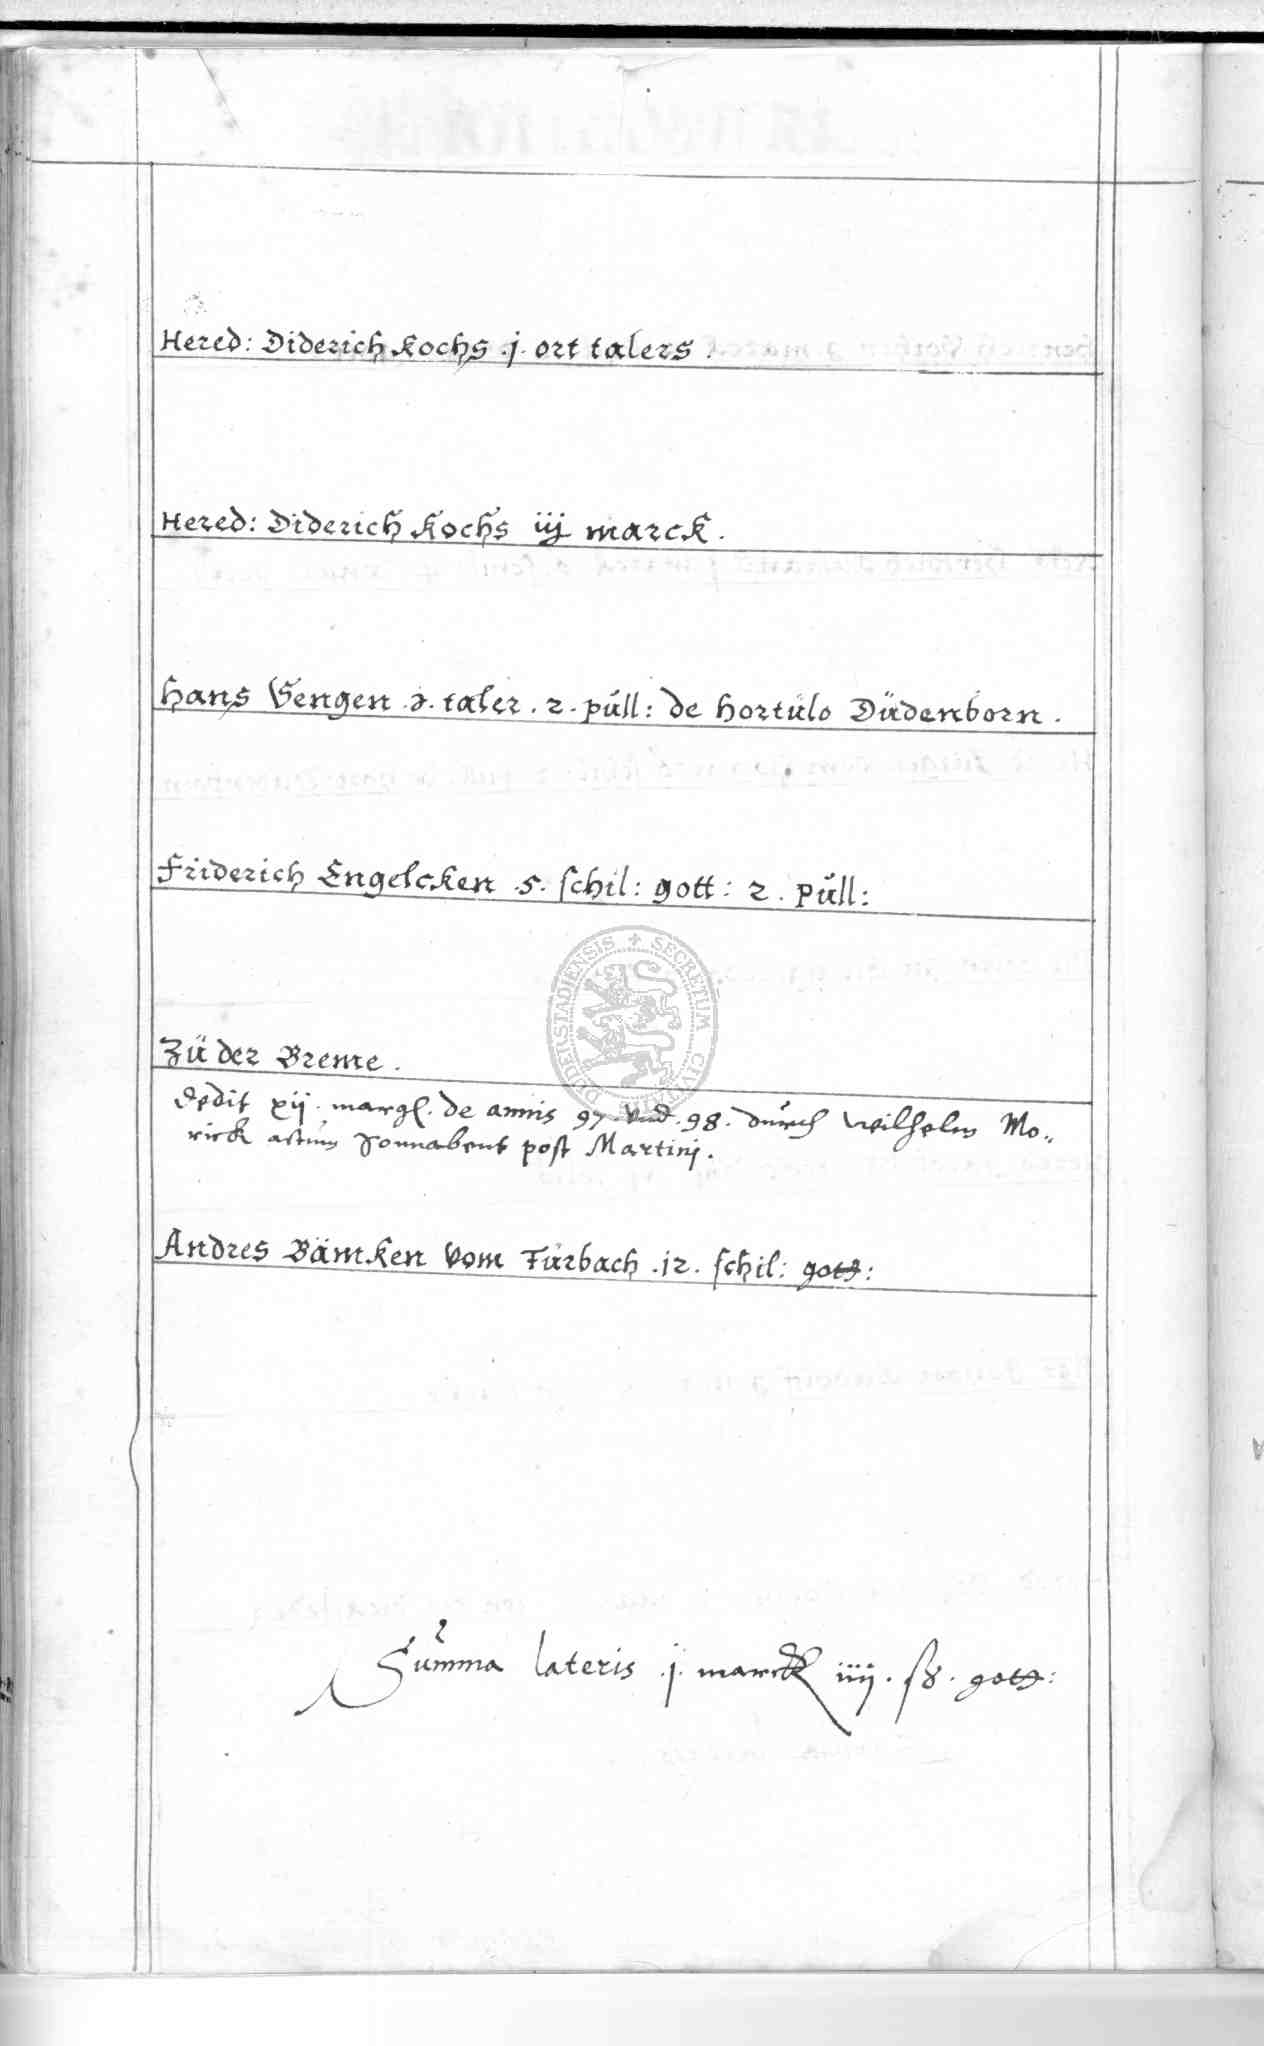 Hered: Diderich Kochs .j. ort talers.
Hered: Diderich Kochs iij marck.
Hans Gengen .j. taler. 2. pull: de hortulo Düdenborn.
Friderich Engelcken .5. schil: gott: 2. pull:
Zu der Breme.
dedit xij. margl. de annis 97. vnd. 98. durch Wilhelm Mo„
rick actum Sonnabent post Martinj.
Andres Bämken vom Furbach .12. schil: gott:
Summa lateris .j. marck iiij. ß. gott:
DUDERSTADIENSIS + SECRETUM CIVITATIS